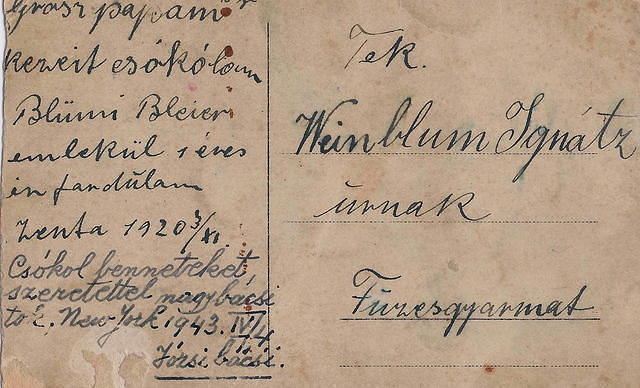 Grosz papám
kezeit csókolom
Blümi Bleier
emlekül 1 éves
én fardúlam
Zenta 1920 3/XI.
Csókol benneteket,
szeretettel nagybácsi
tól. New York 1943. IV/4
Józsi bácsi.
Tek.
Weinblum Ignátz
úrnak
Füzesgyarmat